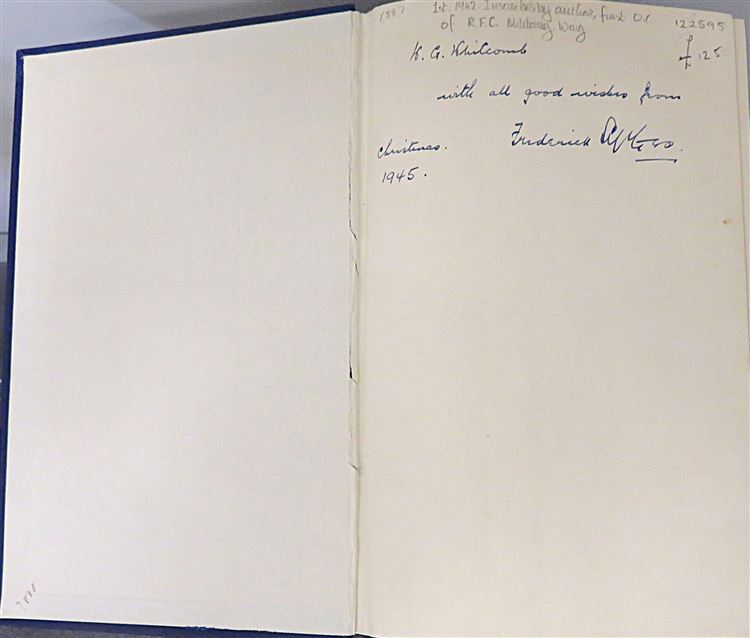 1887
1st. 1942. Inscribed by author, first O.C
of R.F.C. Military Wing
122595
£125
W. G. Whitcomb
with all good wishes from
Frederick Sykes.
Christmas.
1945.